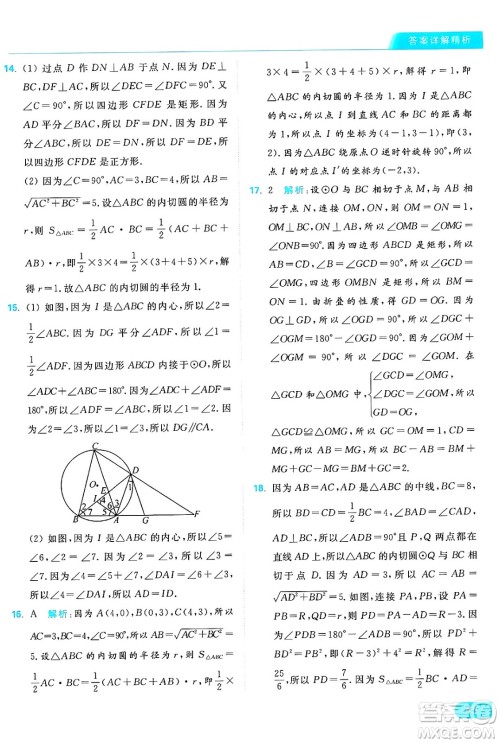 答案详解精析
14. (1) 过点 D 作 DN⊥AB 于点 N. 因为 DE⊥
BC,DF⊥AC,所以∠DEC=∠DFC=90°. 因
为∠C=90°,所以四边形 CFDE 是矩形. 因为
AD 平分∠BAC,所以 DF=DN. 因为 BD 平分
∠ABC,所以 DE=DN. 所以 DE=DF. 所以四
边形 CFDE 是正方形.
(2) 因为∠C=90°,AC=3,BC=4,所以 AB=
√(AC²+BC²)=5. 设△ABC 的内切圆的半径为
r,则 S△ABC=1/2 AC·BC=1/2(AC+BC+
AB)·r. 所以1/2×3×4=1/2×(3+4+5)·r.
解得 r=1. 故△ABC 的内切圆的半径为 1.
15. (1) 如图,因为 I 是△ABC 的内心,所以∠2=
1/2∠ABC. 因为 DG 平分∠ADF,所以∠1=
1/2∠ADF. 因为四边形 ABCD 内接于⊙O,所以
∠ADF+∠ADC=∠ABC+∠ADC=180°. 所以
∠ADF=∠ABC. 所以∠1=∠2. 因为∠2=
∠3,所以∠1=∠3. 所以 DG∥CA.
C
D
O
E
I
B
A
G
F
(2) 如图,因为 I 是△ABC 的内心,所以∠5=
∠6,∠2=∠7. 因为∠3=∠2,所以∠3=∠7.
因为∠4=∠7+∠5,∠DAI=∠3+∠6,所以
∠4=∠DAI. 所以 DA=DI.
16. A 解析:因为 A(4,0),B(0,3),C(4,3),所以
AC=3,BC=4,∠ACB=90°. 所以 AB=√(AC²+BC²)=
5. 设△ABC 的内切圆的半径为 r,则 S△ABC=
1/2 AC·BC=1/2(AC+BC+AB)·r. 所以1/2×
3×4=1/2×(3+4+5)·r. 解得 r=1,即
△ABC 的内切圆的半径为 1. 因为 I 是△ABC
的内心,所以点 I 到直线 AC 和 BC 的距离都
为 1. 所以点 I 的坐标为(4-1,3-1),即(3,2).
因为△ABC 绕原点 O 逆时针旋转 90°,所以
点 I 的对应点 I′的坐标为(-2,3).
17. 2 解析:设⊙O 与 BC 相切于点 M,与 AB
相切于点 N,连接 OM,ON,则 OM=ON,
OM⊥BC,ON⊥AB. 所以∠OMG=∠OMB=
∠ONB=90°. 因为四边形 ABCD 是矩形,所以
∠B=∠BCD=∠GCD=∠OMG=90°. 所以
四边形 OMBN 是正方形. 所以 OM=BM=
1. 由折叠的性质,得 OG=GD,∠OGD=
90°. 所以∠MGO+∠DGC=90°. 因为∠MGO+
∠OGM=90°,所以∠DGC=∠GOM. 在
△GCD 和△OMG 中,{∠GCD=∠OMG,
∠DGC=∠GOM,
GD=OG,
所以
△GCD≌△OMG. 所以 CD=GM,GC=OM=
1. 因为 AB=CD,所以 AB=MG. 因为 BC=
BM+MG+GC=AB+2,所以 BC-AB=2.
18. 因为 AD 是△ABC 的中线,BC=8,所以
BD=1/2 BC=4. 因为 AB=AC,AD=3,所以
AD⊥BC. 所以∠ADB=90°,S△ABC=1/2 BC·
AD=12. 由题意,得圆心 P 且 P,Q 两点都在
直线 AD 上. 因为 AB=AC,所以 AC=AB=
√(AD²+BD²)=5. 连接 PA,PB,设 PA=
PB=R,则 PD=R-3. 因为 AD⊥BC,所以
∠PDB=90°. 在 Rt△PBD 中,所以 PD²+
BD²=PB²,所以(R-3)²+4²=R². 解得 R=
25/6. 设 QD=r,则 S△ABC=1/2(AC+BC+